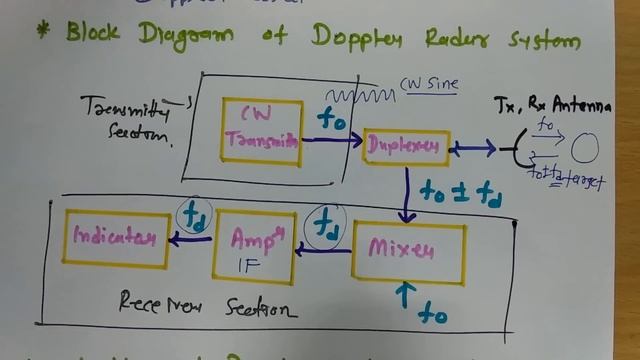 * Block Diagram of Doppler Radar System
CW Sine
Transmitter Section.
CW Transmitter
fo
Duplexer
Tx, Rx Antenna
fo
fo±fd target
fo ± fd
Indicator
fd
Ampr IF
fd
Mixer
fo
Receiver Section